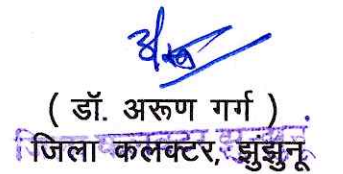 ( डॉ. अरूण गर्ग )
जिला कलक्टर, झुंझुनू